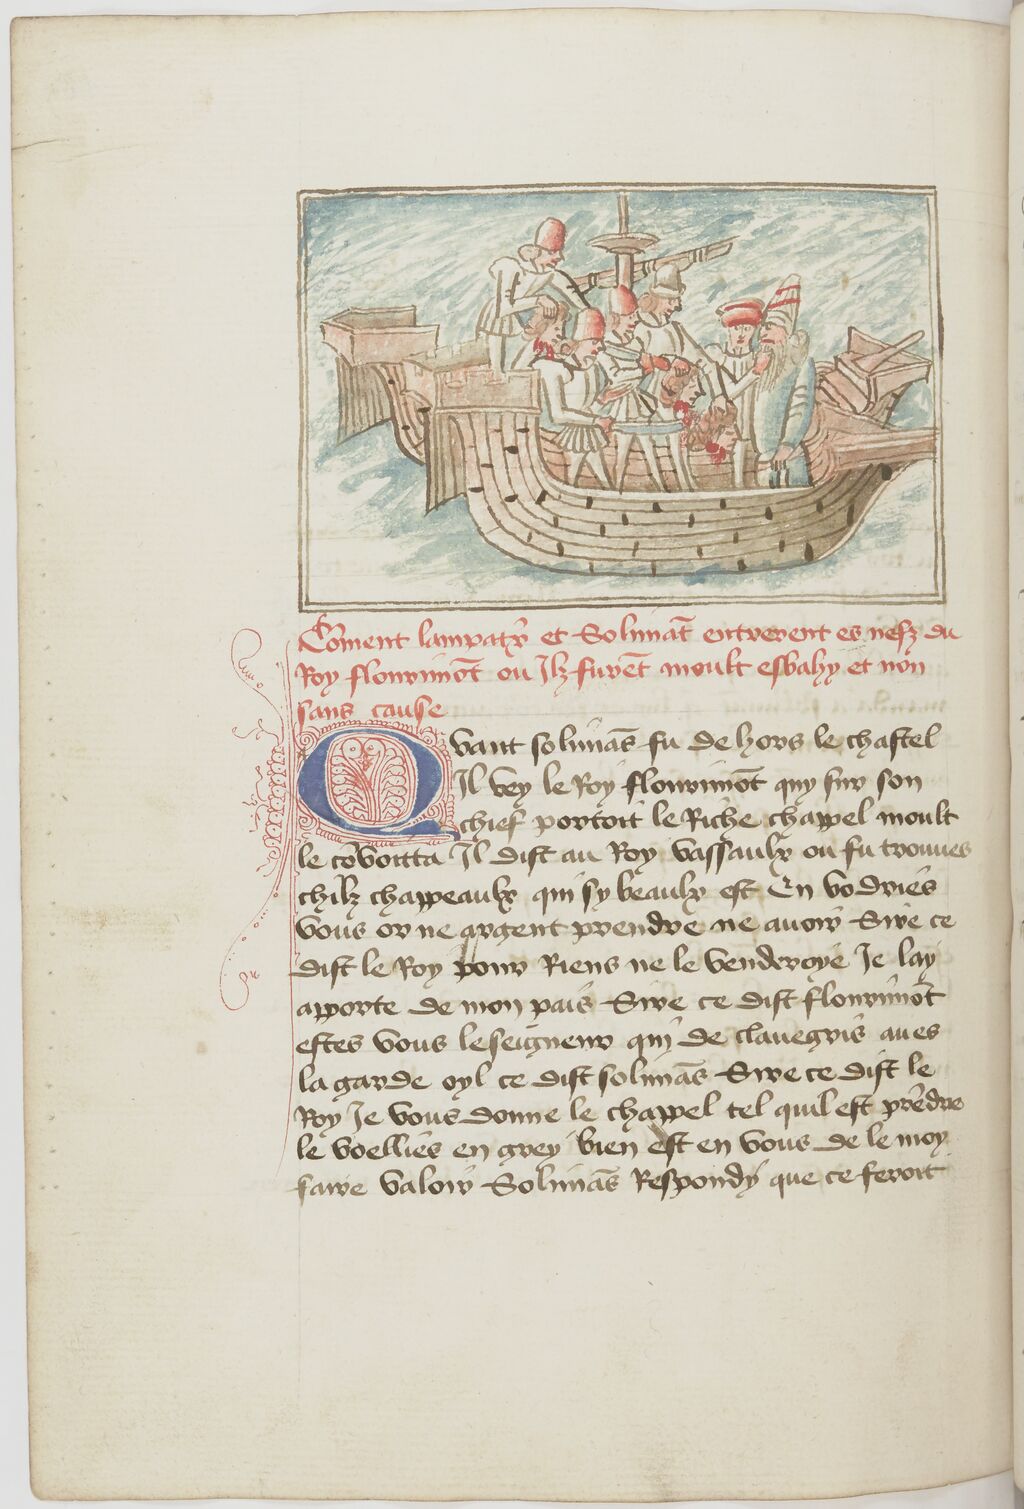 Cõment lampatrͥ et Solimãt entrerent es nefz du
Roy flourimõt ou Ilz furẽt moult esbahy et non
sans cause
Quant solimãs fu dehors le chastel
Il vey le Roy flourimõt quy sur son
chief portoit le Riche chappel moult
le cõvoitta Il dist au Roy vassaulx ou fu trouues
chilz chappeaulx qui sy beaulx est En vodries
vous or ne argent prendre ne auoir Sire ce
dist le Roy pour Riens ne le venderoye Je lay
apporte de mon pais Sire ce dist flourimõt
estes vous le seigneur qui de clauegris aues
la garde oyl ce dist solimãs Sire ce dist le
Roy Je vous donne le chappel tel quil est prẽdre
le voellies en grey bien est en vous de le moy
faire valoir Solimãs Respondy que ce feroit